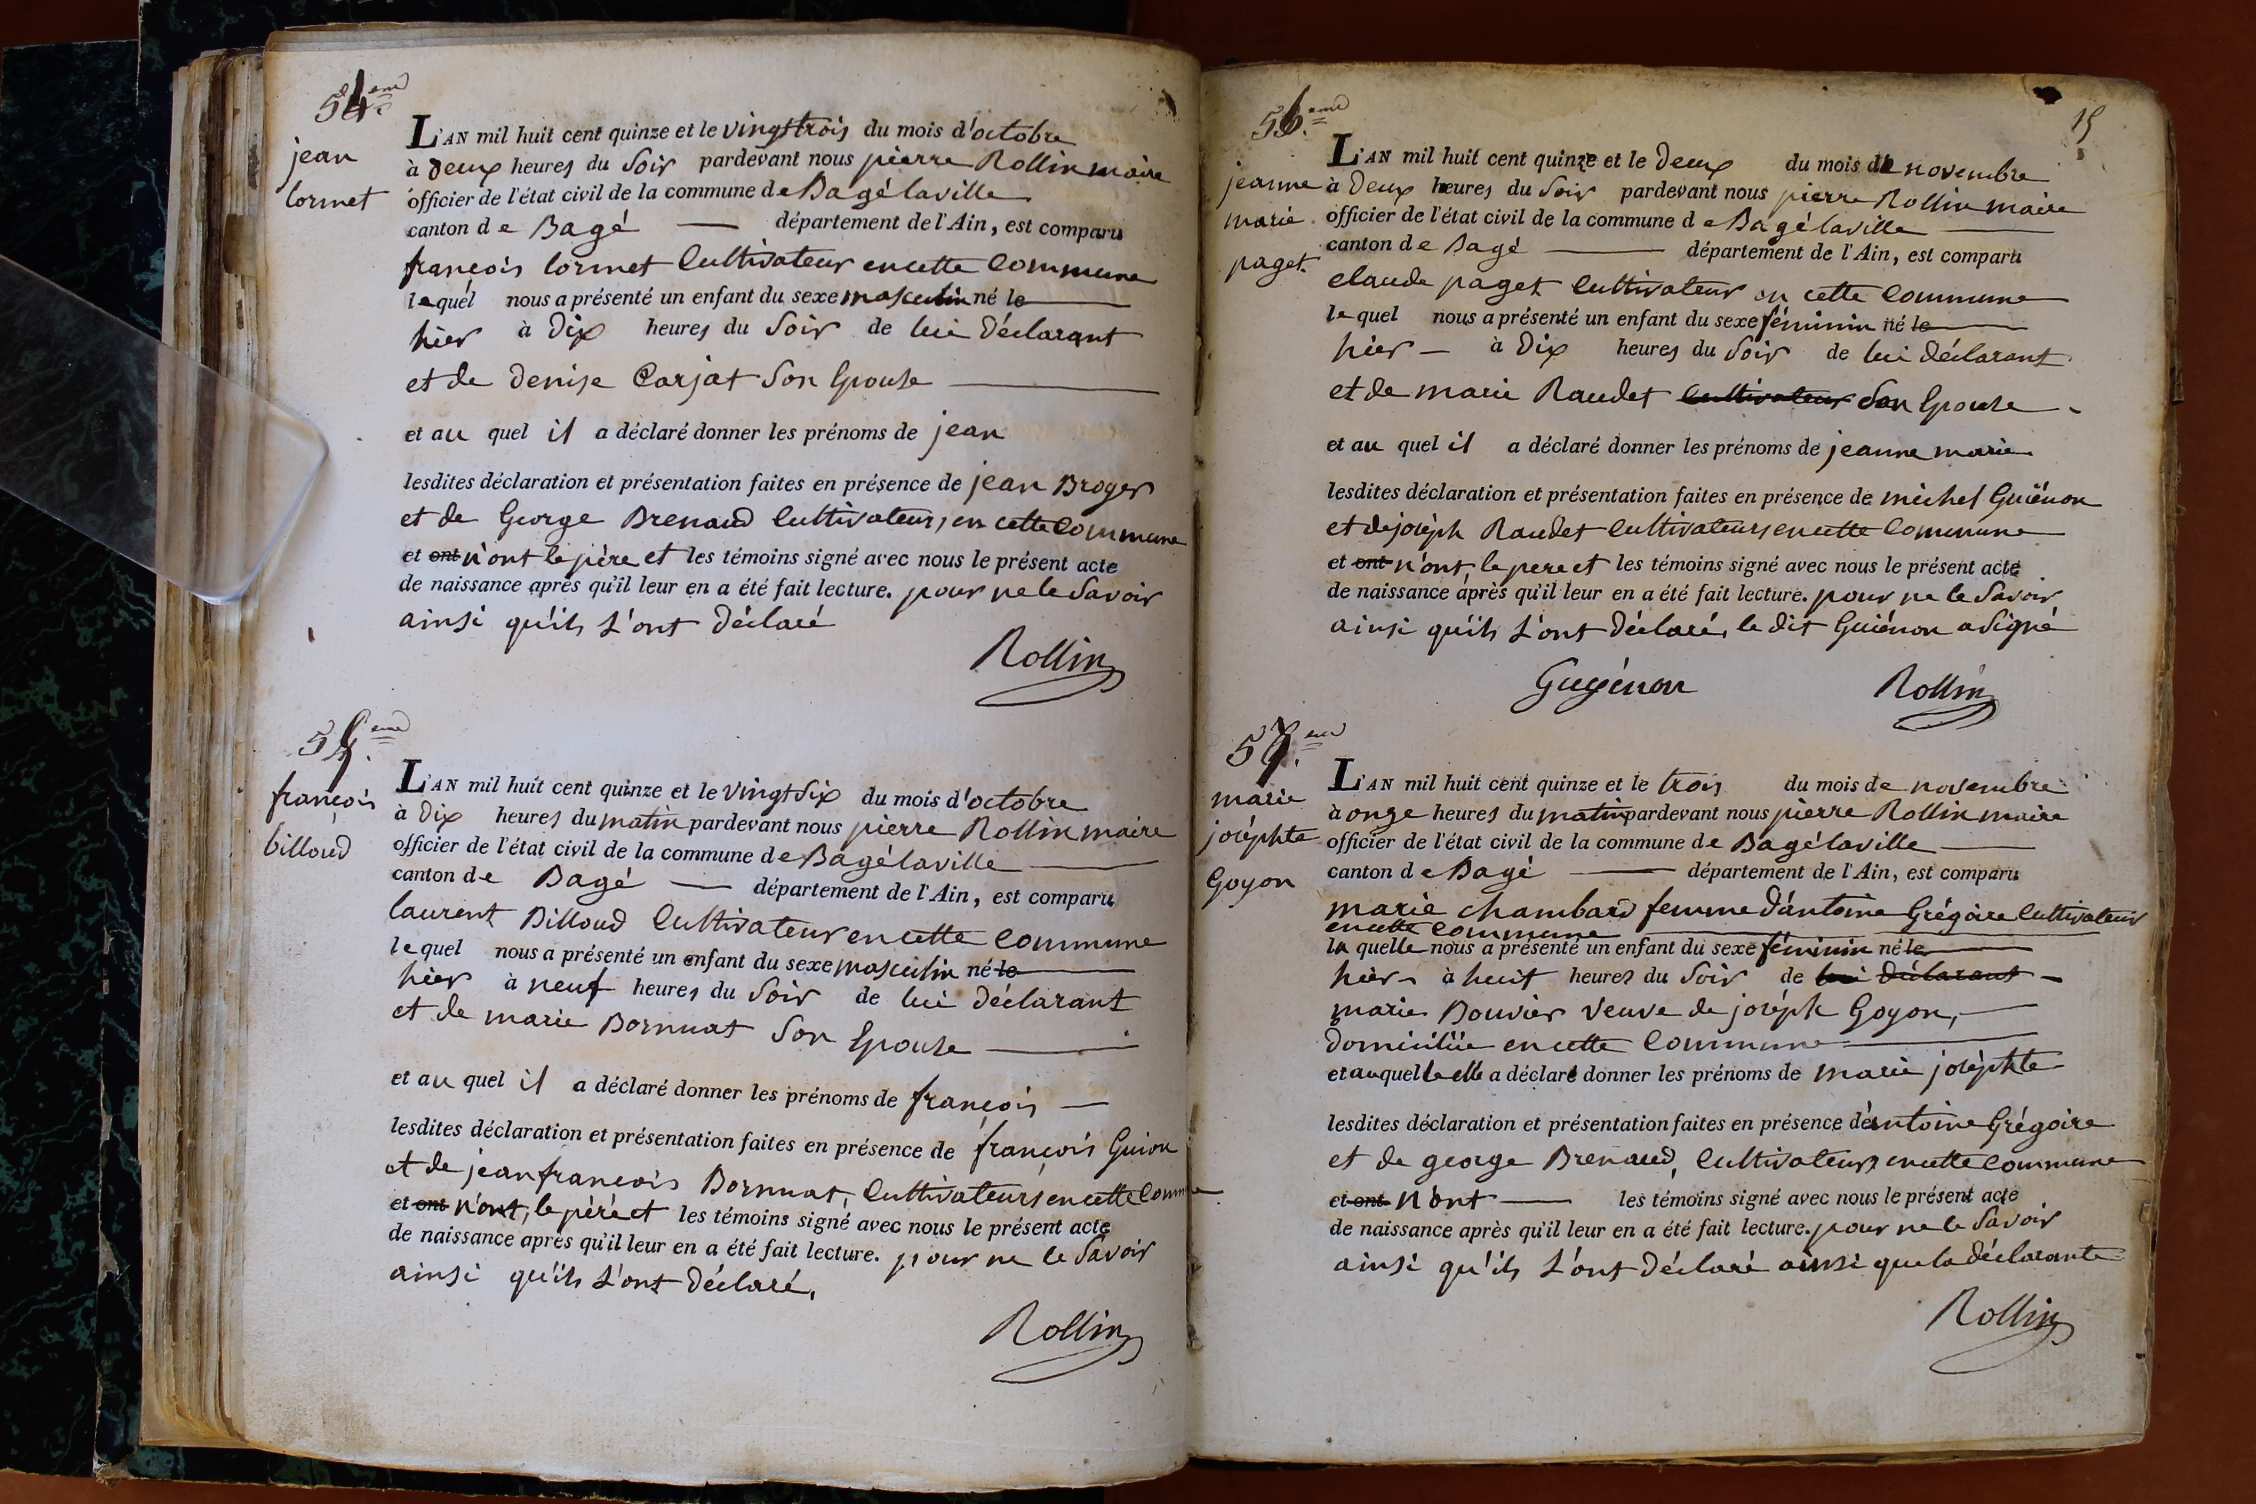 54.eme
jean
lormet
L'AN mil huit cent quinze et le vingt trois du mois d'octobre
à deux heures du Soir pardevant nous pierre Rollin maire
officier de l'état civil de la commune de Bagélaville
canton de Bagé département de l'Ain, est comparu
françois lormet Cultivateur en cette Commune
lequel nous a présenté un enfant du sexe masculin né le
hier à dix heures du Soir de lui déclarant
et de denise Carjat Son Epouse
et au quel il a déclaré donner les prénoms de jean
lesdites déclaration et présentation faites en présence de jean Broyer
et de George Brenaud Cultivateurs en cette Commune
et ont n'ont le père et les témoins signé avec nous le présent acte
de naissance après qu'il leur en a été fait lecture. pour ne le Savoir
ainsi qu'ils l'ont déclaré
Rollin
55.eme
françois
billoud
L'AN mil huit cent quinze et le vingt Six du mois d'octobre
à dix heures du matin pardevant nous pierre Rollin maire
officier de l'état civil de la commune de Bagélaville
canton de Bagé département de l'Ain, est comparu
laurent Billoud Cultivateur en cette Commune
lequel nous a présenté un enfant du sexe masculin né le
hier à neuf heures du Soir de lui déclarant
et de marie Bornuat Son Epouse
et au quel il a déclaré donner les prénoms de françois
lesdites déclaration et présentation faites en présence de françois Guion
et de jean françois Bornuat, Cultivateurs en cette Comm
et ont n'ont, le père et les témoins signé avec nous le présent acte
de naissance après qu'il leur en a été fait lecture. pour ne le Savoir
ainsi qu'ils l'ont déclaré.
Rollin
15
56.eme
jeanne
marie
paget.
L'AN mil huit cent quinze et le deux du mois de novembre
à deux heures du Soir pardevant nous pierre Rollin maire
officier de l'état civil de la commune de Bagélaville
canton de Bagé département de l'Ain, est comparu
claude paget Cultivateur en cette Commune
lequel nous a présenté un enfant du sexe féminin né le
hier à dix heures du Soir de lui déclarant
et de marie Raudet Cultivateur Son Epouse
et au quel il a déclaré donner les prénoms de jeanne marie
lesdites déclaration et présentation faites en présence de michel Guiénon
et de joséph Raudet Cultivateurs en cette Commune
et ont n'ont, le pere et les témoins signé avec nous le présent acte
de naissance après qu'il leur en a été fait lecture. pour ne le Savoir
ainsi qu'ils l'ont déclaré, le dit Guiénon a Signé
Guyénon Rollin
57.eme
marie
joséphte
Goyon
L'AN mil huit cent quinze et le trois du mois de novembre
à onze heures du matin pardevant nous pierre Rollin maire
officier de l'état civil de la commune de Bagélaville
canton de Bagé département de l'Ain, est comparu
marie chambard femme d'antoine Grégoire Cultivateur
en cette Commune
la quelle nous a présenté un enfant du sexe féminin né le
hier à huit heures du Soir de lui déclarant
marie Bouvier veuve de joséph Goyon,
domiciliée en cette Commune
et auquel le elle a déclaré donner les prénoms de marie joséphte
lesdites déclaration et présentation faites en présence d'antoine Grégoire
et de george Brenaud, Cultivateurs en cette Commune
et ont n'ont les témoins signé avec nous le présent acte
de naissance après qu'il leur en a été fait lecture. pour ne le Savoir
ainsi qu'ils l'ont déclaré ainsi que la déclarante
Rollin